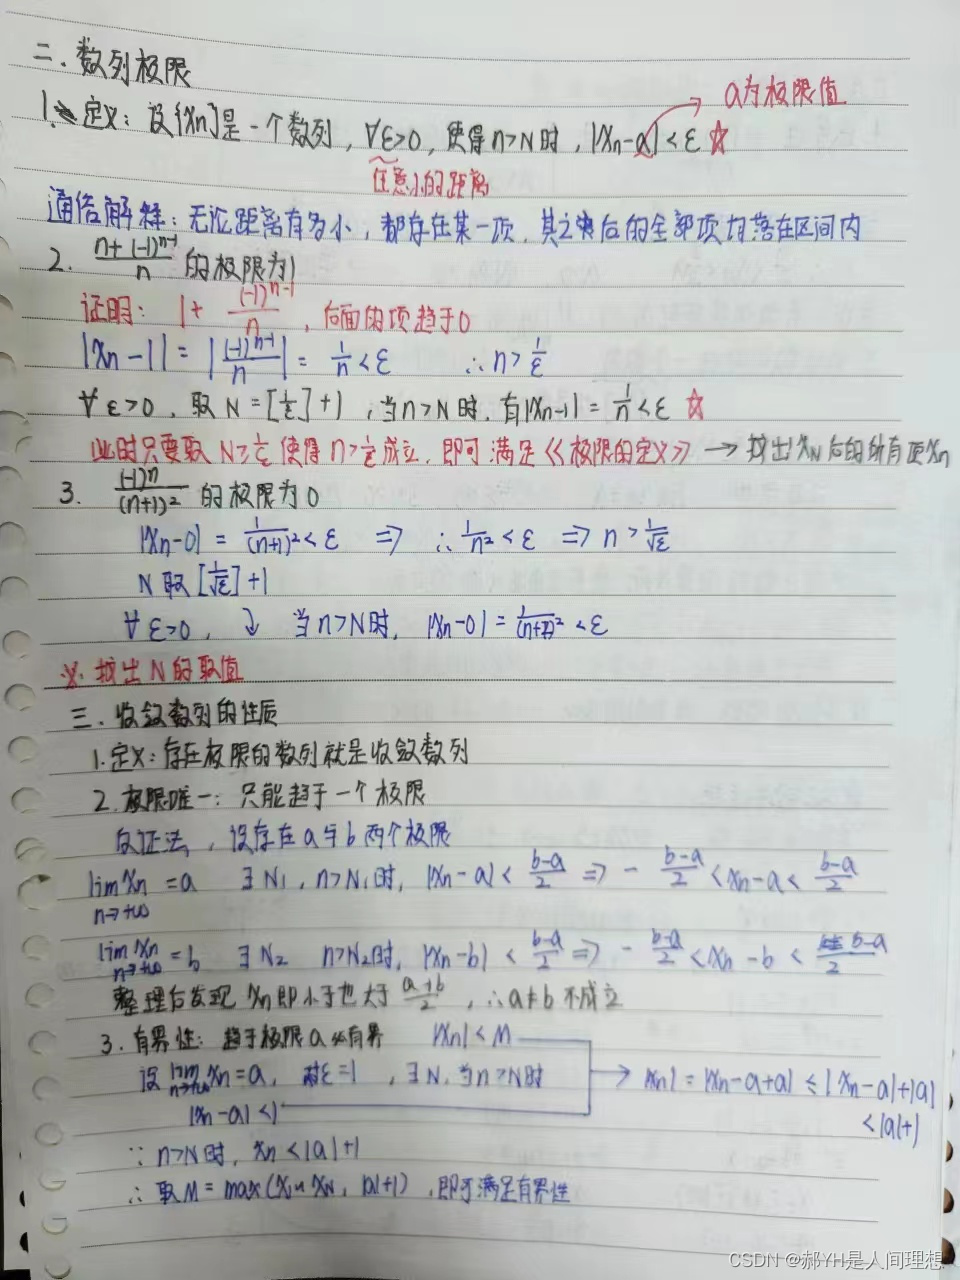 二. 数列极限
a为极限值
1. 定义: 设{xn}是一个数列, ∀ε>0, 使得n>N时, |xn-a|<ε ☆
任意小的距离
通俗解释: 无论距离有多小, 都存在某一项, 其之后的全部项均落在区间内
2. (n+(-1)^(n-1))/n 的极限为1
证明: 1+ (-1)^(n-1)/n, 后面的项趋于0
|xn-1| = |(-1)^(n-1)/n| = 1/n <ε ∴n>1/ε
∀ε>0, 取N=[1/ε]+1, 当n>N时, 有|xn-1|=1/n<ε ☆
此时只要取N>1/ε 使得n>1/ε成立, 即可满足《极限的定义》 → 找出xN后的所有项xn
3. (-1)^n/(n+1)² 的极限为0
|xn-0| = 1/(n+1)² <ε ⇒ ∴1/n²<ε ⇒ n>1/√ε
N取[1/√ε]+1
∀ε>0, ↓ 当n>N时, |xn-0|=1/(n+1)²<ε
※找出N的取值
三. 收敛数列的性质
1.定义: 存在极限的数列就是收敛数列
2.极限唯一: 只能趋于一个极限
反证法, 设存在a与b两个极限
lim xn =a ∃N1, n>N1时, |xn-a|< (b-a)/2 ⇒ -(b-a)/2 <xn-a< (b-a)/2
n→+∞
lim xn =b ∃N2 n>N2时, |xn-b| < (b-a)/2 ⇒ -(b-a)/2 <xn-b< (b-a)/2
n→+∞
整理后发现 xn即小于也大于 (a+b)/2, ∴a≠b不成立
3. 有界性: 趋于极限a必有界 |xn|<M
设 lim xn=a, 对ε=1, ∃N, 当n>N时 → |xn|=|xn-a+a| ≤|xn-a|+|a|
n→+∞
|xn-a|<1 <|a|+1
∵ n>N时, xn<|a|+1
∴ 取M=max(x1…xN, |a|+1), 即可满足有界性
CSDN @郝YH是人间理想